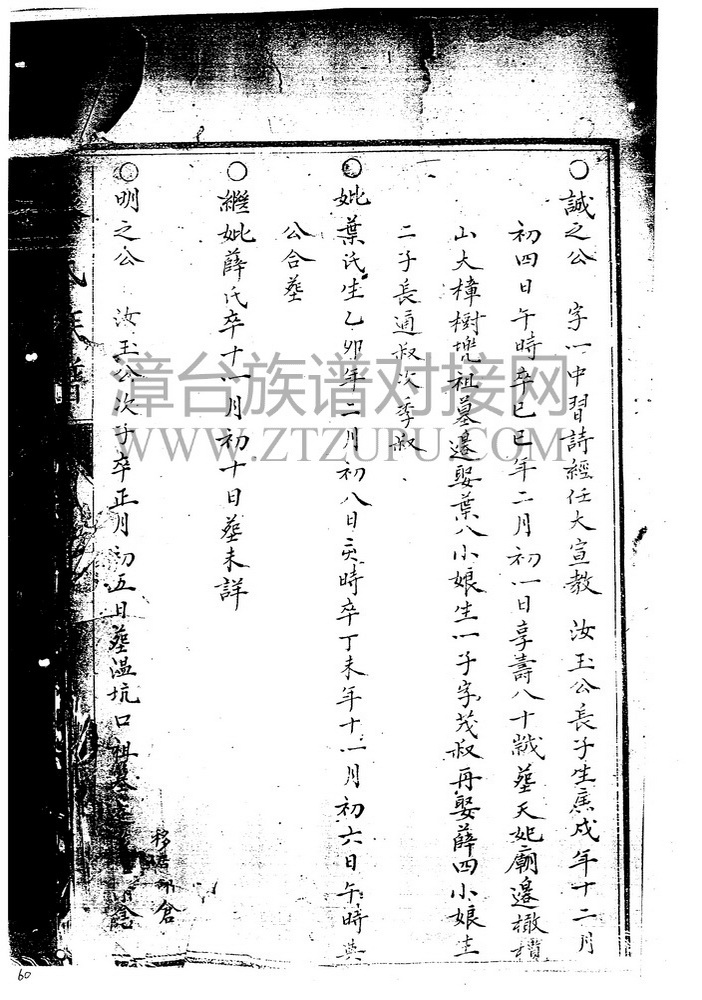 ○誠之公 字一中習詩經任大宣教 汝玉公長子生庚戌年十二月
初四日午時卒己巳年二月初一日享壽八十歲塟天妃廟邊橄欖
山大樟樹兠祖墓邊娶葉八小娘生一子字茂叔再娶薛四小娘生
二子長通叔次季叔
○妣葉氏生乙卯年二月初八日亥時卒丁未年十一月初六日午時與
公合塟
○繼妣薛氏卒十一月初十日塟未詳
○明之公 汝玉公次子卒正月初五日塟温坑口祖墓
移居 倉
氏族譜
漳台族谱对接网
WWW.ZTZUPU.COM
60